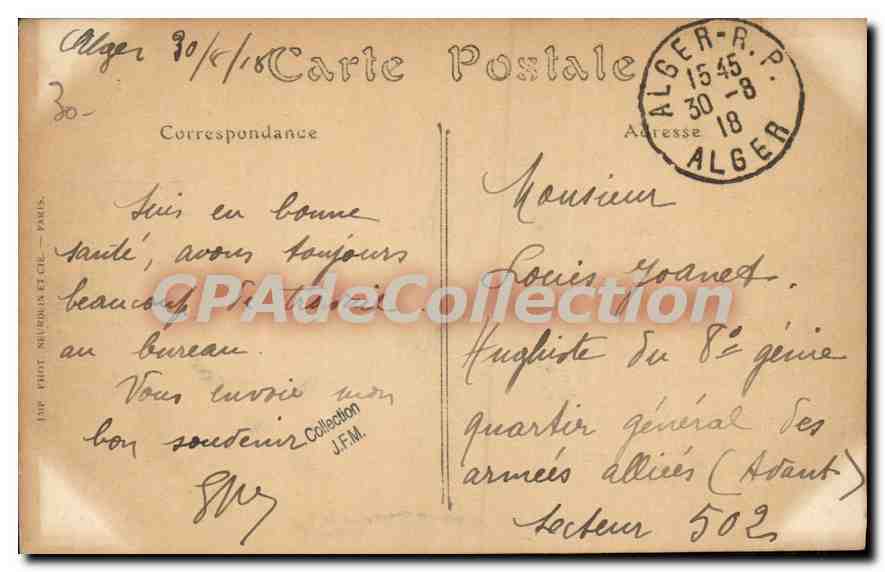 Alger 30/8/18
30-
Carte Postale
ALGER-R.P.
15 45
30 -8
18
ALGER
Correspondance
Adresse
Suis en bonne
santé, avons toujours
beaucoup de travail
au bureau.
Vous envoie mon
bon souvenir
Collection
J.F.M.
Monsieur
Louis Joanet.
Hughiste du 8e génie
quartier général des
armées alliées (
Secteur 502
IMP. PHOT. NEURDEIN ET CIE. — PARIS.
CPAdeCollection.com